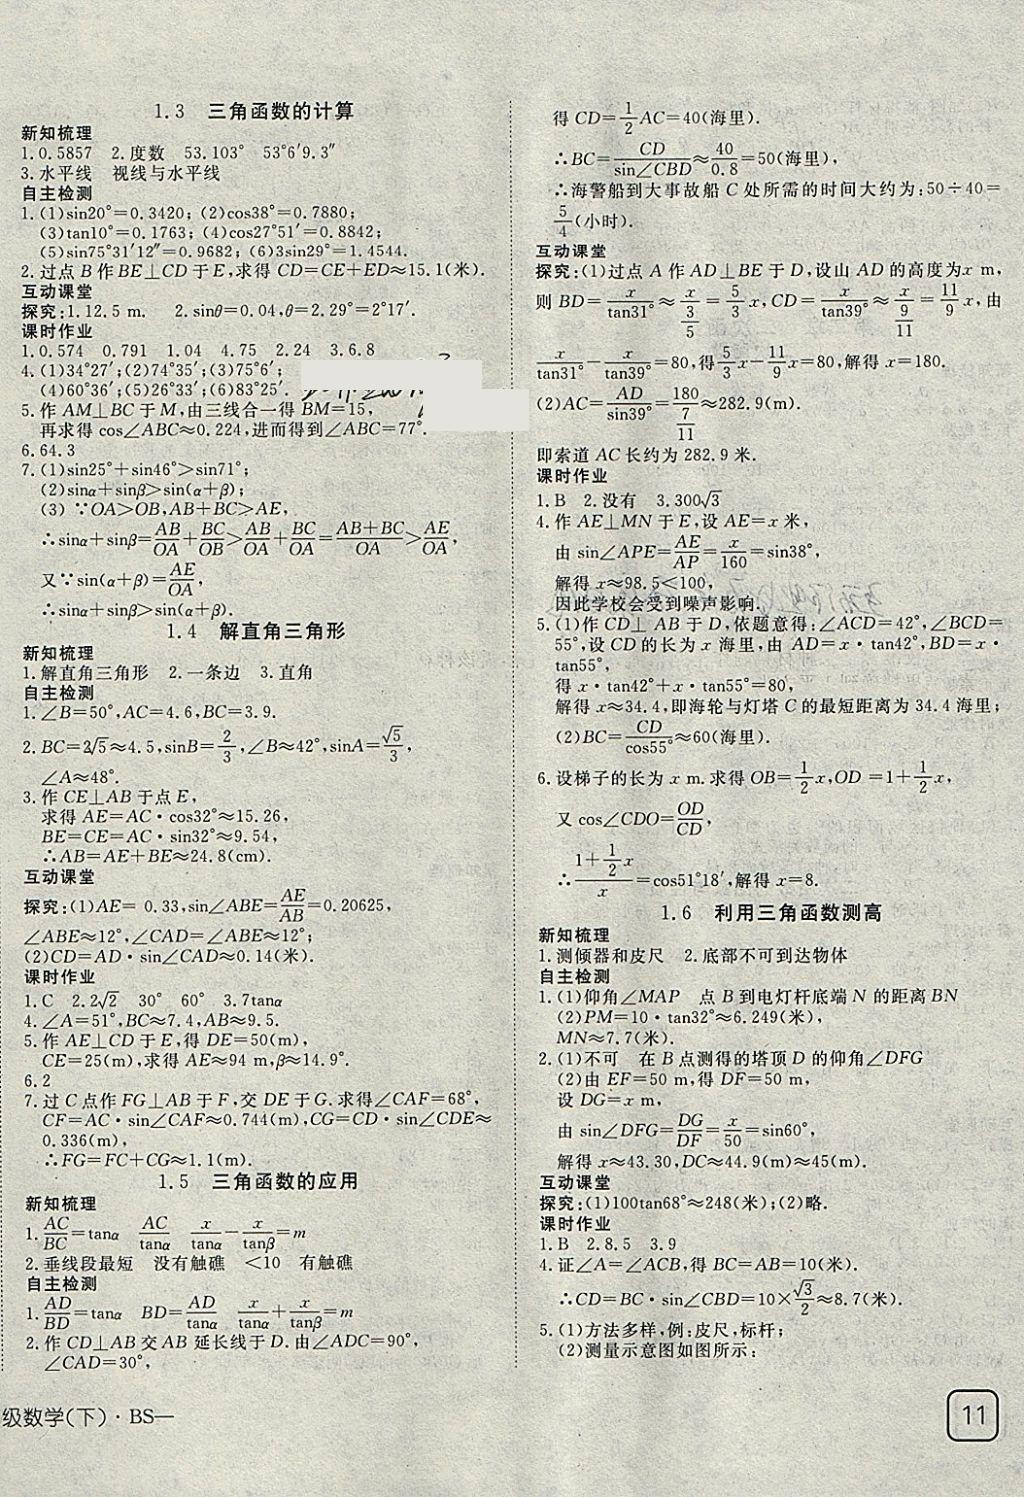 1.3 三角函数的计算
新知梳理
1.0.5857 2.度数 53.103° 53°6′9.3″
3.水平线 视线与水平线
自主检测
1.(1)sin20°=0.3420;(2)cos38°=0.7880;
(3)tan10°=0.1763;(4)cos27°51′=0.8842;
(5)sin75°31′12″=0.9682;(6)3sin29°=1.4544.
2.过点B作BE⊥CD于E,求得CD=CE+ED≈15.1(米).
互动课堂
探究:1.12.5 m. 2.sinθ=0.04,θ=2.29°=2°17′.
课时作业
1.0.574 0.791 1.04 4.75 2.24 3.6.8
4.(1)34°27′;(2)74°35′;(3)75°6′;
(4)60°36′;(5)26°33′;(6)83°25′.
5.作AM⊥BC于M,由三线合一得BM=15,
再求得cos∠ABC≈0.224,进而得到∠ABC=77°.
6.64.3
7.(1)sin25°+sin46°>sin71°;
(2)sinα+sinβ>sin(α+β);
(3)∵OA>OB,AB+BC>AE,
∴sinα+sinβ=AB/OA+BC/OB>AB/OA+BC/OA=(AB+BC)/OA>AE/OA,
又∵sin(α+β)=AE/OA,
∴sinα+sinβ>sin(α+β).
1.4 解直角三角形
新知梳理
1.解直角三角形 2.一条边 3.直角
自主检测
1.∠B=50°,AC=4.6,BC=3.9.
2.BC=2√5≈4.5,sinB=2/3,∠B≈42°,sinA=√5/3,
∠A≈48°.
3.作CE⊥AB于点E,
求得AE=AC·cos32°≈15.26,
BE=CE=AC·sin32°≈9.54,
∴AB=AE+BE≈24.8(cm).
互动课堂
探究:(1)AE=0.33,sin∠ABE=AE/AB=0.20625,
∠ABE≈12°,∠CAD=∠ABE≈12°;
(2)CD=AD·sin∠CAD≈0.14(米).
课时作业
1.C 2.2√2 30° 60° 3.7tanα
4.∠A=51°,BC≈7.4,AB≈9.5.
5.作AE⊥CD于E,得DE=50(m),
CE=25(m),求得AE≈94 m,β≈14.9°.
6.2
7.过C点作FG⊥AB于F,交DE于G.求得∠CAF=68°,
CF=AC·sin∠CAF≈0.744(m),CG=CD·sin∠CDE≈
0.336(m),
∴FG=FC+CG≈1.1(m).
1.5 三角函数的应用
新知梳理
1.AC/BC=tanα AC/tanα x/tanα-x/tanβ=m
2.垂线段最短 没有触礁 <10 有触礁
自主检测
1.AD/BD=tanα BD=AD/tanα x/tanα+x/tanβ=m
2.作CD⊥AB交AB延长线于D.由∠ADC=90°,
∠CAD=30°,
级数学(下)·BS—
得CD=1/2AC=40(海里).
∴BC=CD/sin∠CBD≈40/0.8=50(海里),
∴海警船到大事故船C处所需的时间大约为:50÷40=
5/4(小时).
互动课堂
探究:(1)过点A作AD⊥BE于D,设山AD的高度为x m,
则BD=x/tan31°≈x/(3/5)=5/3x,CD=x/tan39°≈x/(9/11)=11/9x,由
x/tan31°-x/tan39°=80,得5/3x-11/9x=80,解得x=180.
(2)AC=AD/sin39°=180/(7/11)≈282.9(m).
即索道AC长约为282.9米.
课时作业
1.B 2.没有 3.300√3
4.作AE⊥MN于E,设AE=x米,
由sin∠APE=AE/AP=x/160=sin38°,
解得x≈98.5<100,
因此学校会受到噪声影响.
5.(1)作CD⊥AB于D,依题意得:∠ACD=42°,∠BCD=
55°,设CD的长为x海里,由AD=x·tan42°,BD=x·
tan55°,
得x·tan42°+x·tan55°=80,
解得x≈34.4,即海轮与灯塔C的最短距离为34.4海里;
(2)BC=CD/cos55°≈60(海里).
6.设梯子的长为x m.求得OB=1/2x,OD=1+1/2x,
又cos∠CDO=OD/CD,
∴(1+1/2x)/x=cos51°18′,解得x=8.
1.6 利用三角函数测高
新知梳理
1.测倾器和皮尺 2.底部不可到达物体
自主检测
1.(1)仰角∠MAP 点B到电灯杆底端N的距离BN
(2)PM=10·tan32°≈6.249(米),
MN≈7.7(米).
2.(1)不可 在B点测得的塔顶D的仰角∠DFG
(2)由EF=50 m,得DF=50 m,
设DG=x m,
由sin∠DFG=DG/DF=x/50=sin60°,
解得x≈43.30,DC≈44.9(m)≈45(m).
互动课堂
探究:(1)100tan68°≈248(米);(2)略.
课时作业
1.B 2.8.5 3.9
4.证∠A=∠ACB,得BC=AB=10(米).
∴CD=BC·sin∠CBD=10×√3/2≈8.7(米).
5.(1)方法多样,例:皮尺,标杆;
(2)测量示意图如图所示:
11